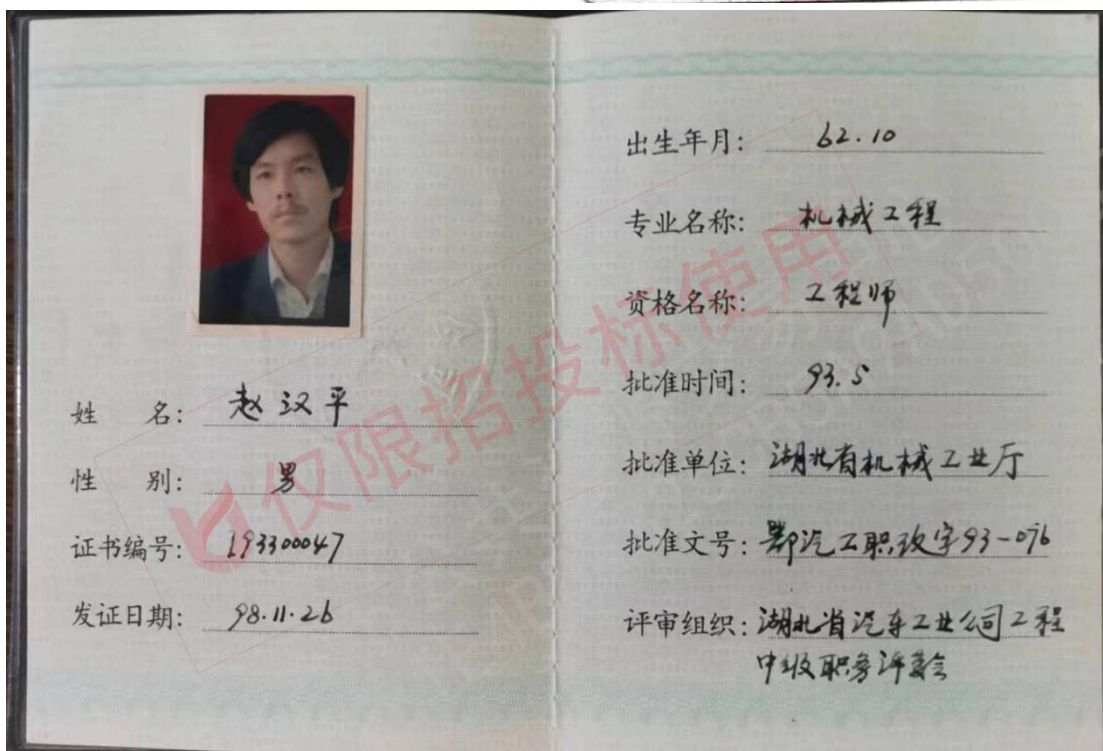 姓 名: 赵汉平
性 别: 男
证书编号: L93300047
发证日期: 98.11.26
出生年月: 62.10
专业名称: 机械工程
资格名称: 工程师
批准时间: 93.5
批准单位: 湖北省机械工业厅
批准文号: 鄂汽工职改字93-076
评审组织: 湖北省汽车工业公司工程
中级职务评委会
仅限招投标使用